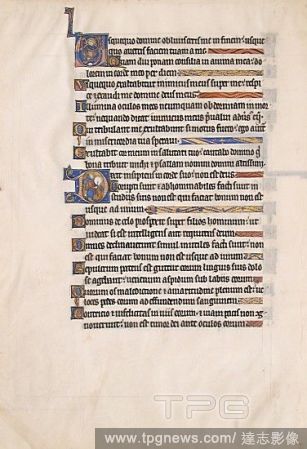 Usquequo domine obliuisceris me in finem: usque
quo auertis faciem tuam a me.
Quam diu ponam consilia in anima mea: do
lorem in corde meo per diem.
Usquequo exaltabitur inimicus meus super me: respi
ce exaudi me domine deus meus.
Illumina oculos meos ne umquam obdormiam in mor
te: ne quando dicat inimicus meus preualui aduersus eum.
Qui tribulant me exultabunt si motus fuero: ego autem
in misericordia tua speraui.
Exultabit cor meum in salutari tuo: cantabo domino qui
bona tribuit michi: et psallam nomini domini altissimi.
Dixit insipiens in corde suo: non est deus.
Corrupti sunt et abhominabiles facti sunt in
studiis suis: non est qui faciat bonum non est
usque ad unum.
Dominus de celo prospexit super filios hominum: ut
uideat si est intelligens aut requirens deum.
Omnes declinauerunt simul inutiles facti sunt: non
est qui faciat bonum non est usque ad unum.
Sepulcrum patens est guttur eorum linguis suis dolo
se agebant: uenenum aspidum sub labiis eorum.
Quorum os maledictione et amaritudine plenum est: ue
loces pedes eorum ad effundendum sanguinem.
Contricio et infelicitas in uiis eorum: et uiam pacis non cog
nouerunt: non est timor dei ante oculos eorum.
TPG
www.tpgnews.com/ 達志影像